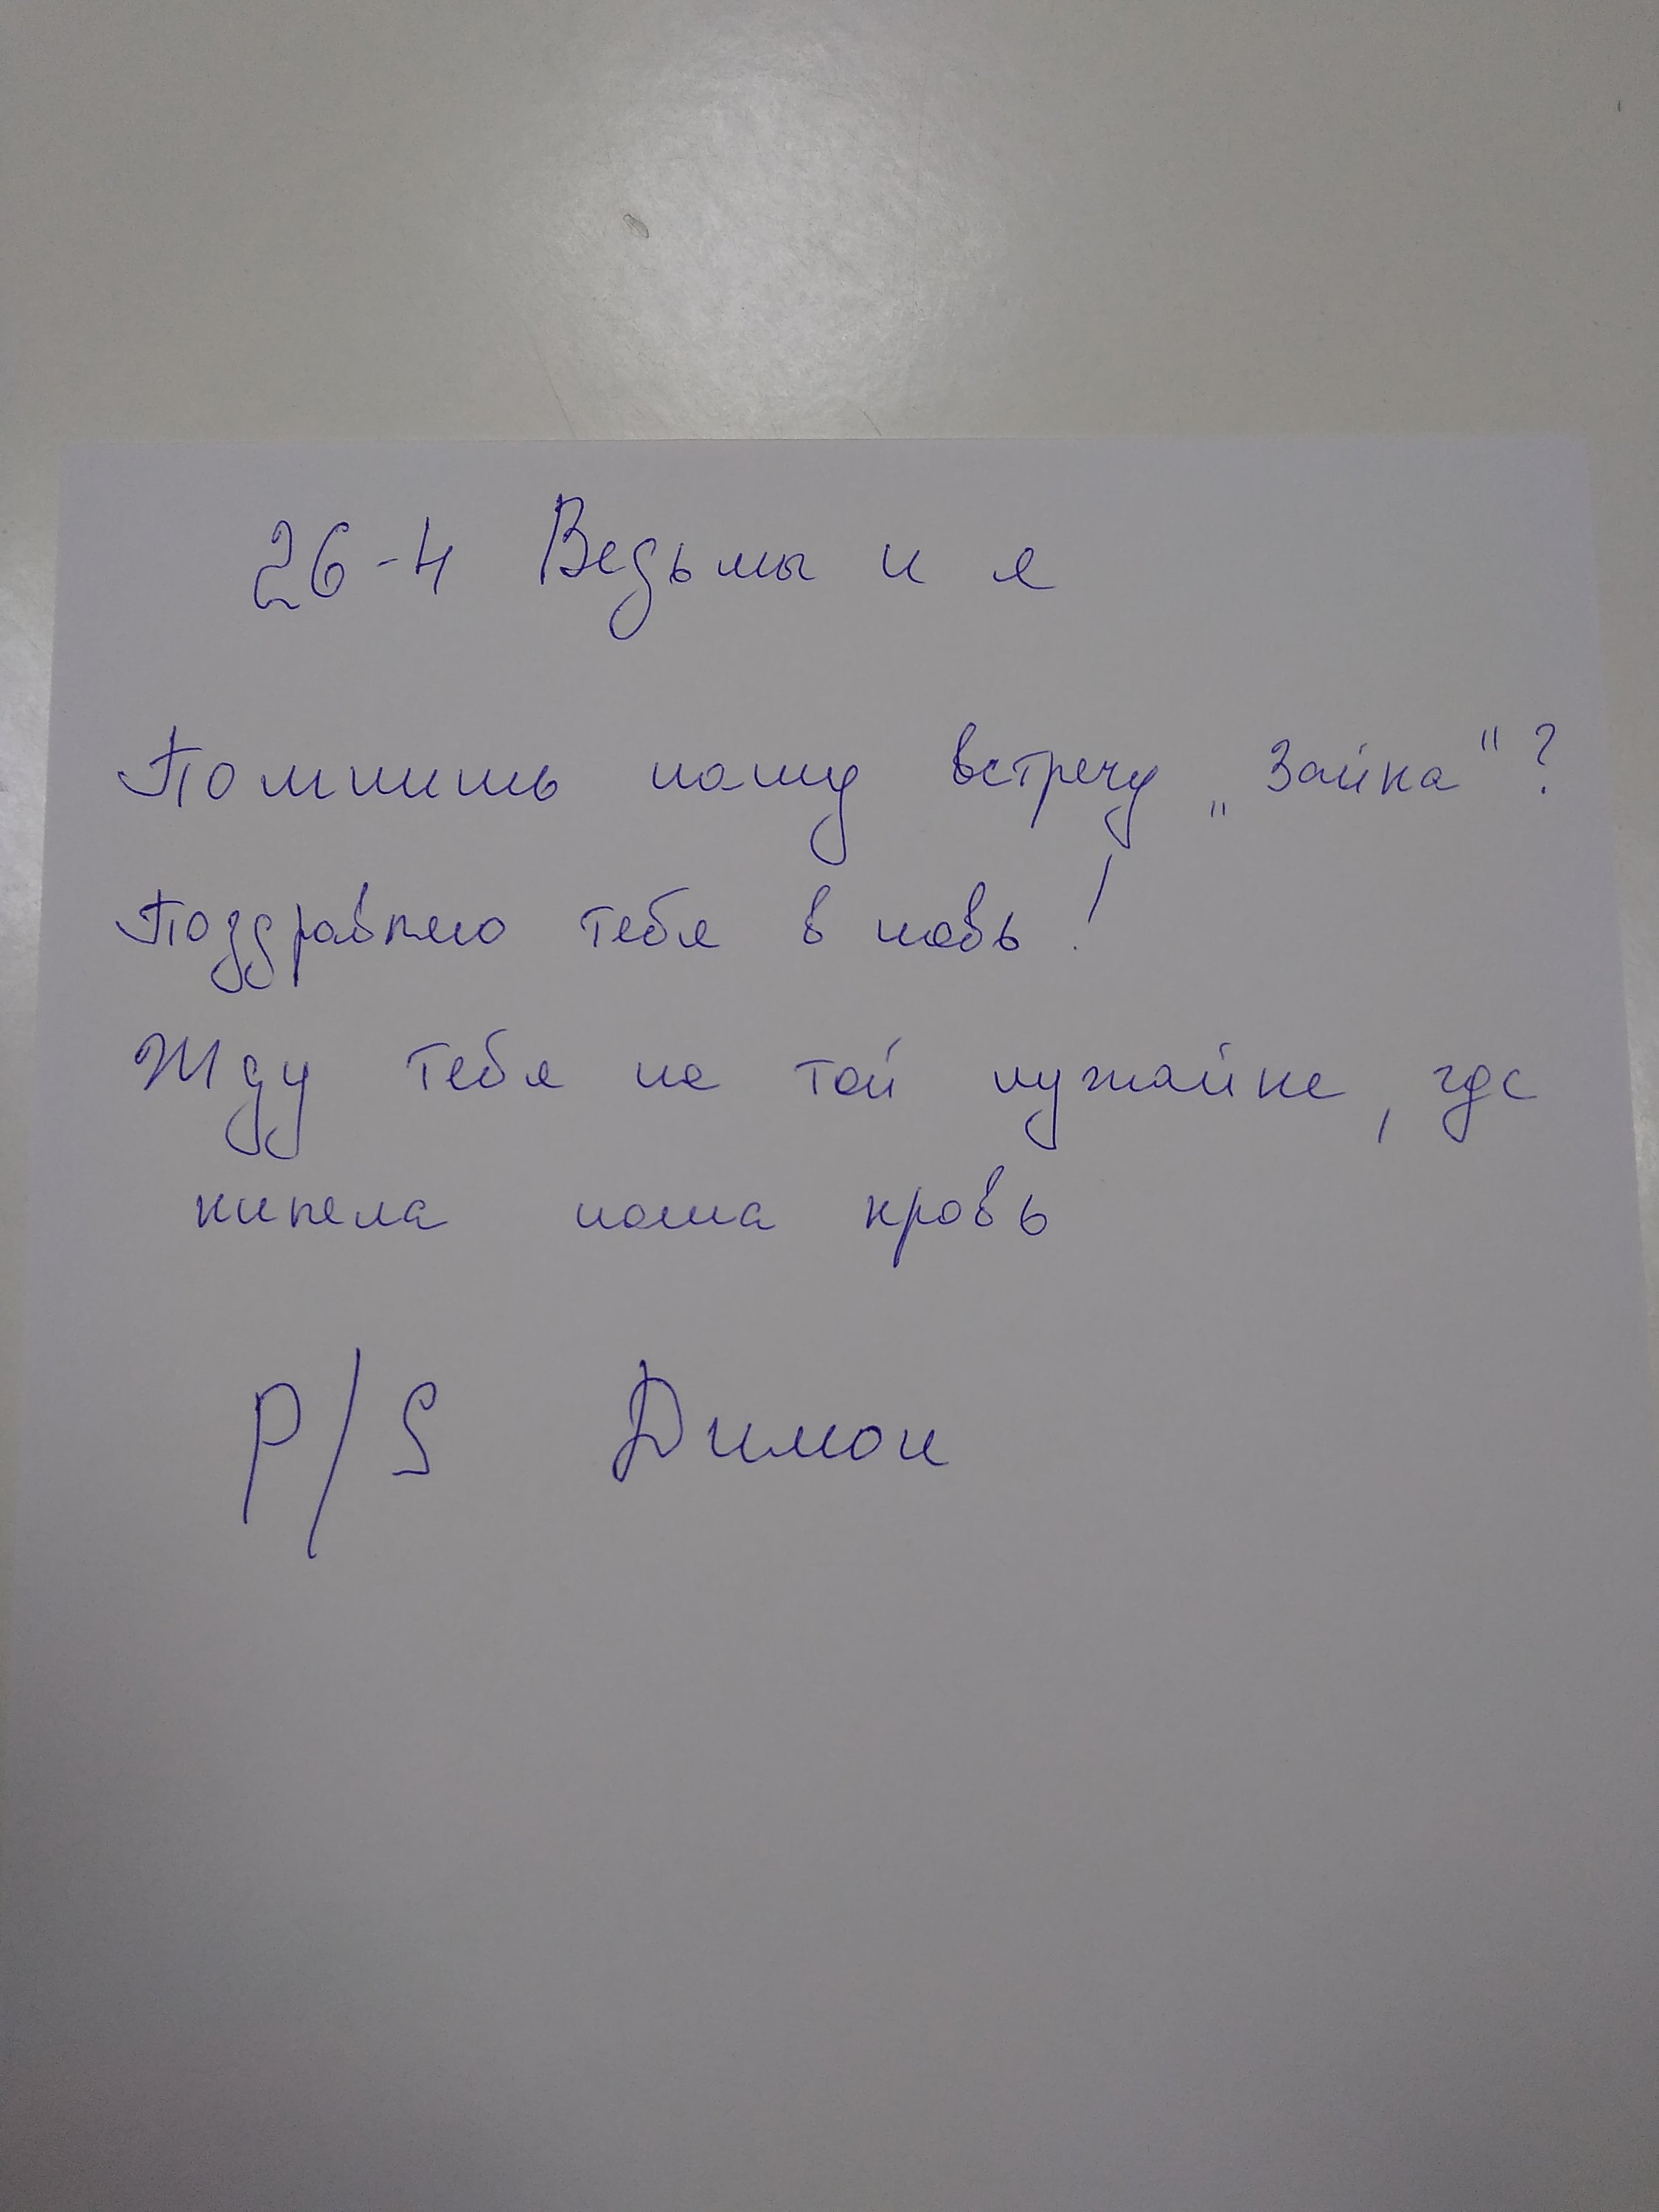 26-4 Ведьмы и я
Помнишь нашу встречу „Зайка"?
Поздравляю тебя в новь!
Жду тебя на той лужайке, где
кипела наша кровь
P/S Димон